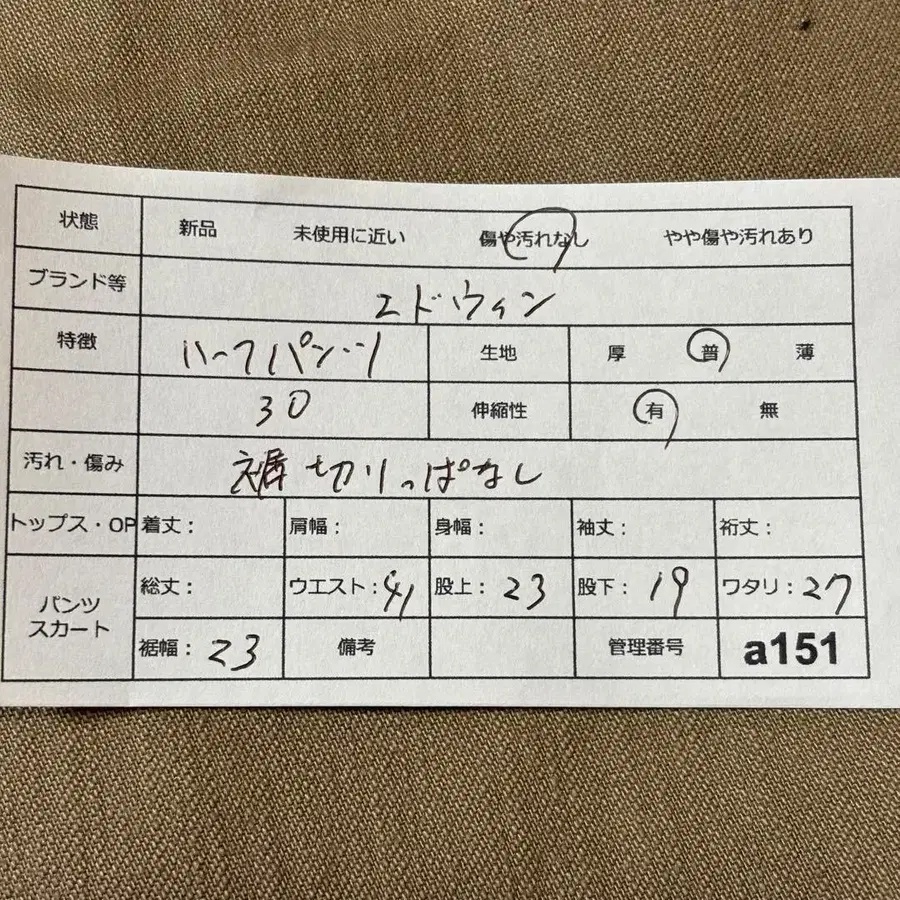 状態 新品 未使用に近い 傷や汚れなし やや傷や汚れあり
ブランド等 エドウィン
特徴 ハーフパンツ 生地 厚 普 薄
30 伸縮性 有 無
汚れ・傷み 裾切りっぱなし
トップス・OP 着丈： 肩幅： 身幅： 袖丈： 裄丈：
パンツ スカート 総丈： ウエスト：41 股上：23 股下：19 ワタリ：27
裾幅：23 備考 管理番号 a151